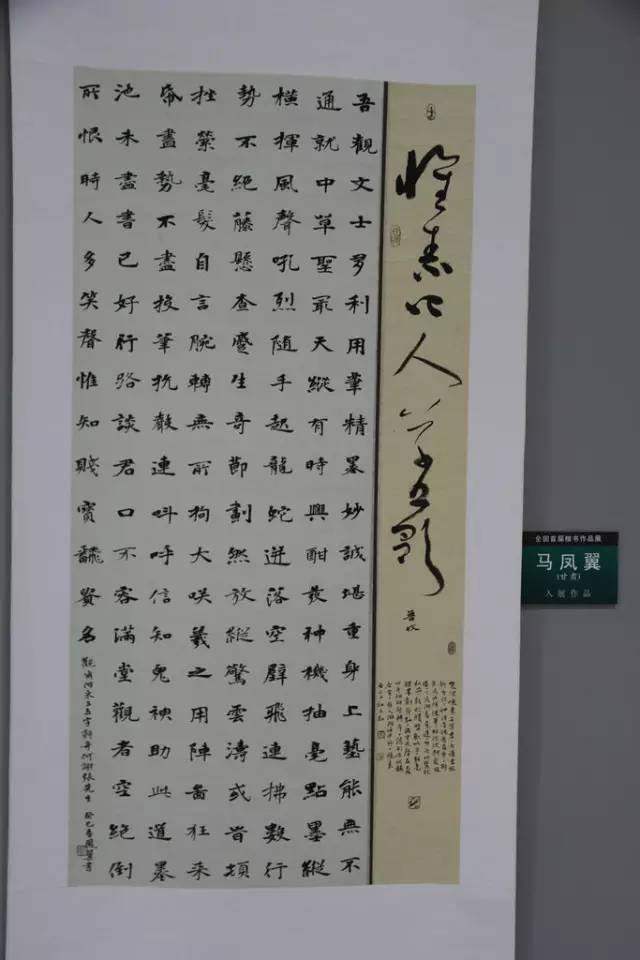 懷素上人草書歌
吾觀文士多利用筆精墨妙誠堪重身上藝能無不
通就中草聖最天縱有時興酣發神機抽毫點墨縱
橫揮風聲吼烈隨手起龍蛇迸落空壁飛連拂數行
勢不絕藤懸查蹙生奇節劃然放縱驚雲濤或旹頓
挫縈毫髮自言腕轉無所拘大咲羲之用陣啚狂來
帋盡勢不盡投筆抗聲連叫呼信知鬼神助此道墨
池未盡書已好行路談君口不容滿堂觀者空絕倒
所恨時人多笑聲惟知賤寶飜貴名
癸巳春鳳翼書
全国首届楷书作品展
马凤翼
(甘肃)
入展作品